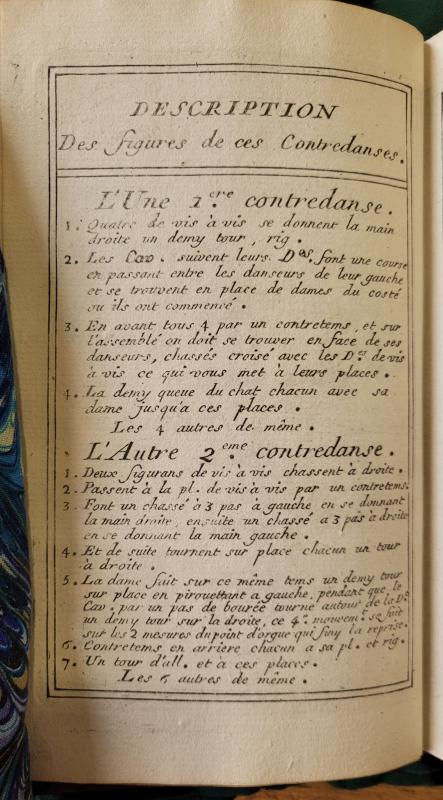 DESCRIPTION
Des figures de ces Contredanses.
L'Une 1.ere contredanse.
1. Quatre de vis à vis se donnent la main
droite un demy tour, rig.
2. Les Cav. suivent leurs D.es font une course
en passant entre les danseurs de leur gauche
et se trouvent en place de dames du costé
ou ils ont commencé.
3. En avant tous 4 par un contretems, et sur
l'assemblé on doit se trouver en face de ses
danseurs, chassés croisé avec les D.es de vis
à vis ce qui vous met à leurs places.
4. La demy queue du chat chacun avec sa
dame jusqu'a ces places.
Les 4 autres de même.
L'Autre 2.eme contredanse.
1. Deux figurans de vis à vis chassent à droite.
2. Passent à la pl. de vis à vis par un contretems.
3. Font un chassé à 3 pas à gauche, en se donnant
la main droite, ensuite un chassé a 3 pas à droite
en se donnant la main gauche.
4. Et de suite tournent sur place chacun un tour
à droite.
5. La dame fait sur ce même tems un demy tour
sur place en pirouettant a gauche, pendant que le
Cav. par un pas de bourée tourne autour de la D.e
un demy tour sur la droite, ce 4.e mouvem.t se fait
sur les 2 mesures du point d'orgue qui finy la reprise.
6. Contretems en arriere chacun a sa pl. et rig.
7. Un tour d'all. et à ces places.
Les 6 autres de même.